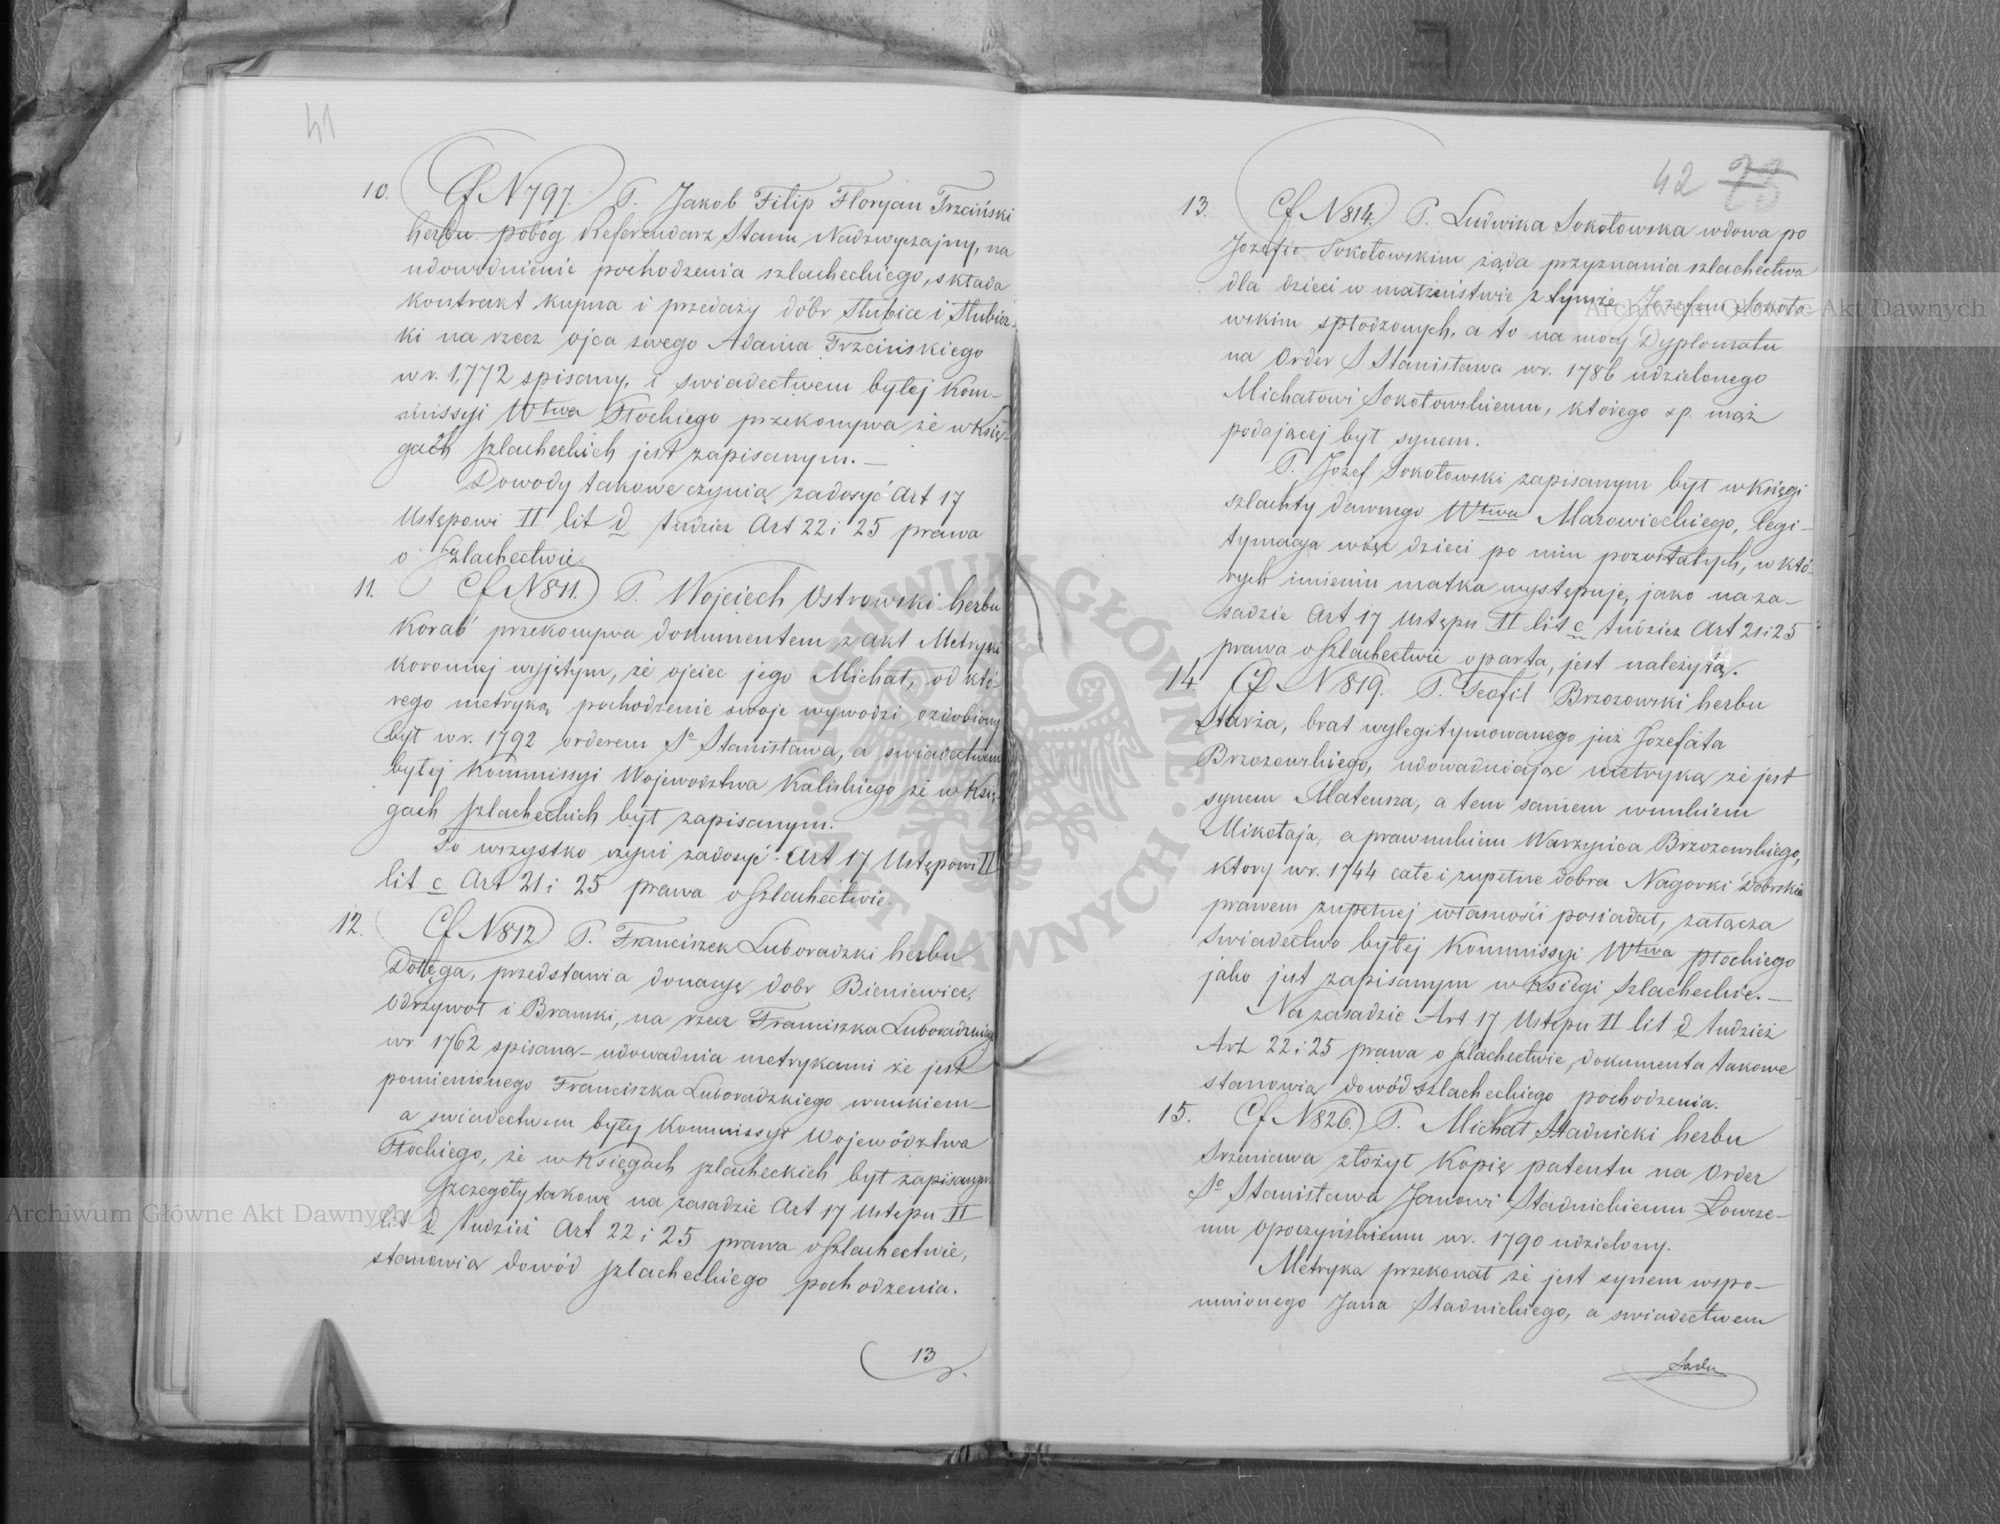 41
10. Cf N 797. P. Jakob Filip Floryan Trzciński
herbu pobóg Referendarz Stanu Nadzwyczajny, na
udowodnienie pochodzenia szlacheckiego, składa
kontrakt kupna i przedaży dóbr Słubice i Słubicz-
ki na rzecz ojca swego Adama Trzcińskiego
w r. 1,772 spisany, i swiadectwem byłej Kom-
missyi Wtwa Płockiego przekonywa że w Księ-
gach szlacheckich jest zapisanym. —
Dowody takowe czynią zadosyć Art 17
Ustępowi II lit d tudzież Art 22 i 25 prawa
o Szlachectwie.
11. Cf N 811. P. Wojciech Ostrowski herbu
Korab przekonywa dokumentem z akt Metryki
koronnej wyjętym, że ojciec jego Michał, od któ-
rego metryką pochodzenie swoje wywodzi ozdobiony
był w r. 1792 orderem So Stanisława, a swiadectwem
byłej Kommissyi Województwa Kaliskiego że w Księ-
gach szlacheckich był zapisanym.
To wszystko czyni zadosyć Art 17 Ustępowi II
lit c Art 21 i 25 prawa o Szlachectwie.
12. Cf N 812 P. Franciszek Luboradzki herbu
Dołęga, przedstawia donacyę dobr Bieniewice,
Odrzywoł i Bramki, na rzecz Franciszka Luboradzkiego
w r 1762 spisaną – udowadnia metrykami że jest
pomienionego Franciszka Luboradzkiego wnukiem –
a swiadectwem byłej Kommissyi Województwa
Płockiego, że w Księgach szlacheckich był zapisanym
Szczegóły takowe na zasadzie Art 17 Ustępu II
lit d tudzież Art 22 i 25 prawa o Szlachectwie,
stanowią dowód szlacheckiego pochodzenia.
13
42 23
13. Cf N 814. P. Ludwika Sokołowska wdowa po
Jozefie Sokołowskim żąda przyznania szlachectwa
dla dzieci w małżeństwie z tymże Jozefem Sokoło
wskim spłodzonych, a to na mocy Dyplomatu
na Order S Stanisława w r. 1786 udzielonego
Michałowi Sokołowskiemu, którego sp. mąż
podającej był synem.
P. Jozef Sokołowski zapisanym był w Księgi
szlachty dawnego Wtwa Mazowieckiego, legi-
tymacya więc dzieci po nim pozostałych, w któ-
rych imieniu matka występuje, jako na za-
sadzie Art 17 Ustępu II lit c tudzież Art 21 i 25
prawa o Szlachectwie oparta, jest należytą.
14 Cf N 819. P. Teofil Brzozowski herbu
Starża, brat wylegitymowanego już Jozefata
Brzozowskiego, udowadniając metryką że jest
synem Mateusza, a tem samem wnukiem
Mikołaja, a prawnukiem Warzyńca Brzozowskiego,
ktory w r. 1744 całe i zupełne dobra Nagorki Dobrskie
prawem zupełnej własności posiadał, załącza
Swiadectwo byłej Kommissyi Wtwa płockiego
jako jest zapisanym w Księgi Szlacheckie. —
Na zasadzie Art 17 Ustępu II lit d tudzież
Art 22 i 25 prawa o Szlachectwie, dokumenta takowe
stanowią dowód szlacheckiego pochodzenia.
15. Cf N 826. P. Michał Stadnicki herbu
Srzeniawa złożył Kopię patentu na Order
So Stanisława Janowi Stadnickiemu Łowcze-
mu Opoczyńskiemu w r. 1790 udzielony.
Metryką przekonał że jest synem wspo-
mnionego Jana Stadnickiego, a swiadectwem
Sadu
Archiwum Główne Akt Dawnych
Archiwum Główne Akt Dawnych
ARCHIWUM GŁÓWNE AKT DAWNYCH